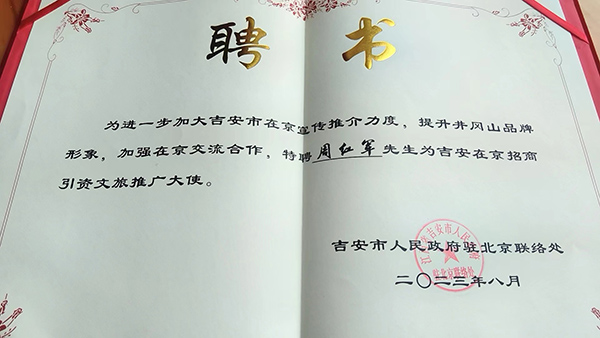 聘 书
为进一步加大吉安市在京宣传推介力度，提升井冈山品牌
形象，加强在京交流合作，特聘 周红军 先生为吉安在京招商
引资文旅推广大使。
吉安市人民政府驻北京联络处
二〇二三年八月
江西省吉安市人民政府
驻北京联络处